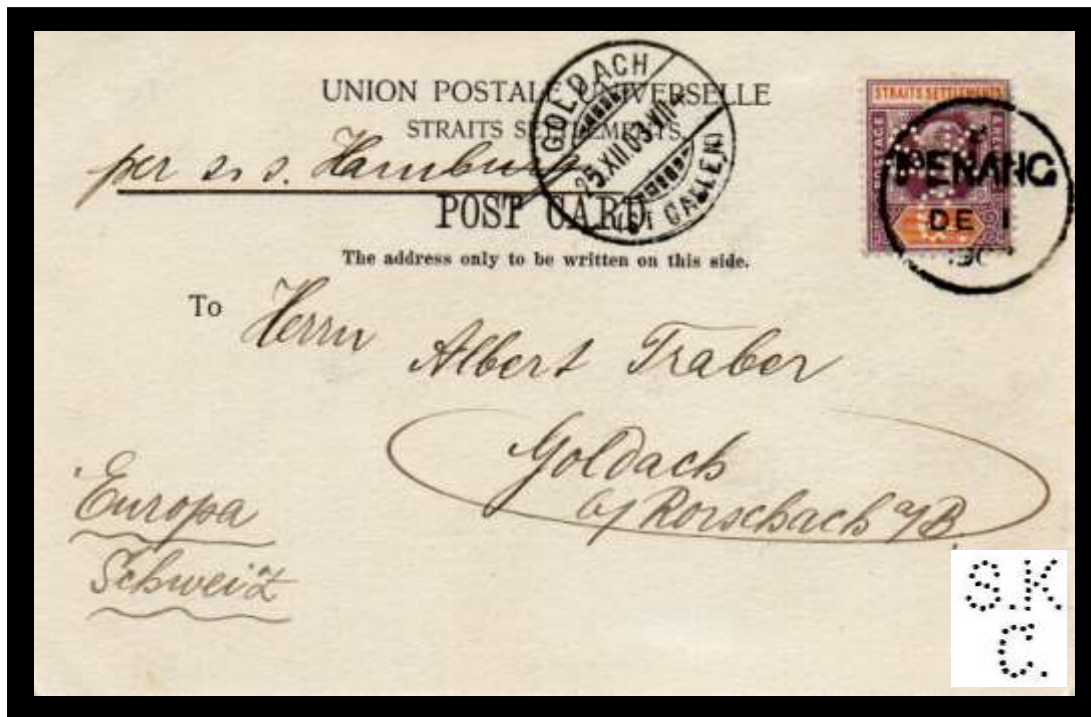 UNION POSTALE UNIVERSELLE
STRAITS SETTLEMENTS
per s. s. Hamburg
POST CARD
The address only to be written on this side.
GOLDACH
25.XII.03.VII
(ST GALLEN)
STRAITS SETTLEMENTS
POSTAGE &
PENANG
DE 1
To Herrn Albert Traber
Goldach
b/ Rorschach a/B.
Europa
Schweiz
S.K
C.